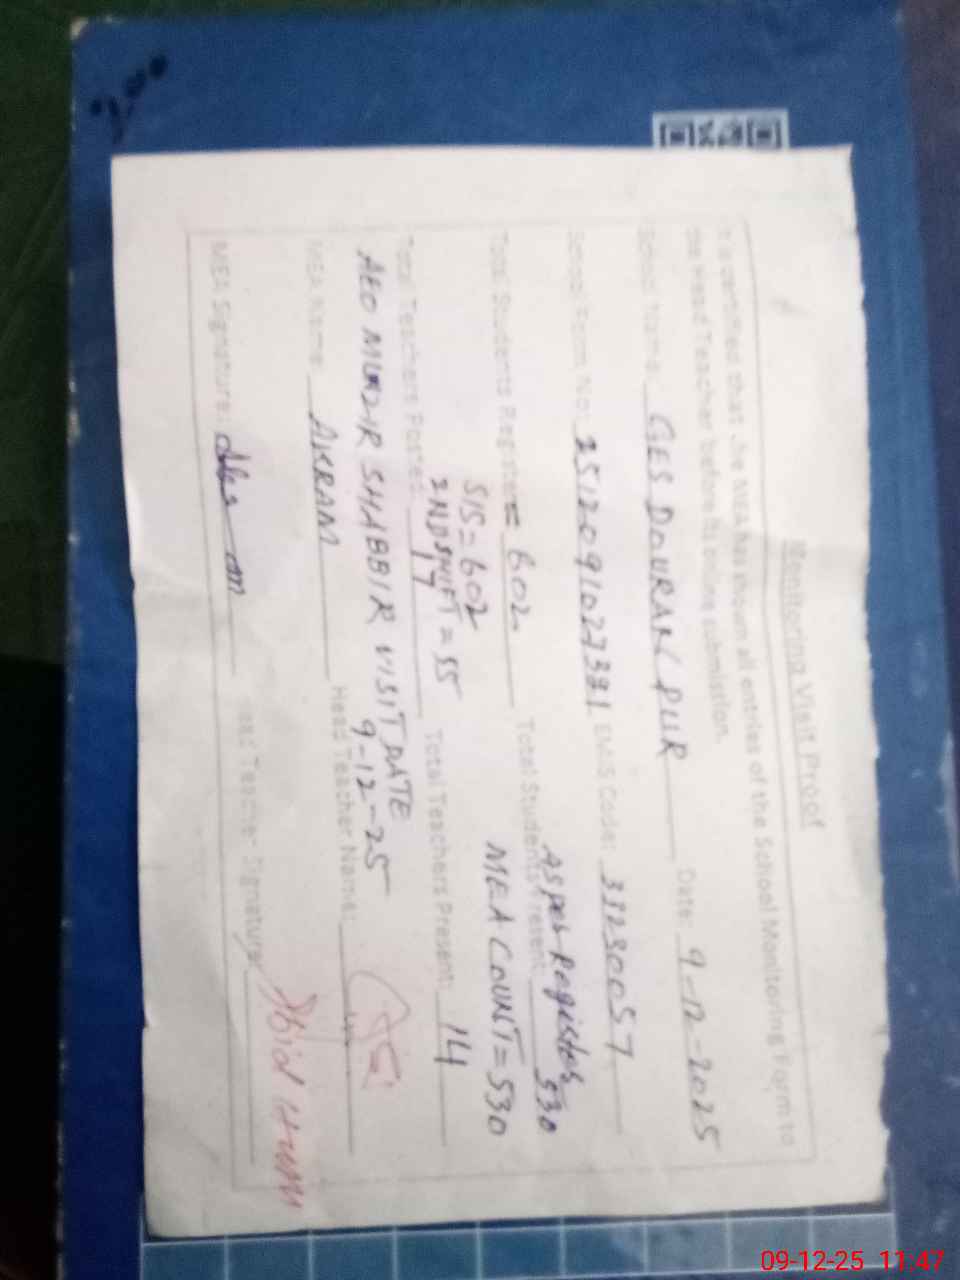 Monitoring Visit Proof
It is certified that the MEA has shown all entries of the School Monitoring Form to
the Head Teacher before its online submission.
School Name: GES DOURAN PUR Date: 9-12-2025
School Form No: 25120910273 EMIS Code: 33230057
As per Register
Total Students Register= 602 Total Students Present 530
SIS=602 MEA COUNT=530
2ND SHIFT=55
Total Teachers Posted: 17 Total Teachers Present: 14
AEO SHABBIR VISIT DATE
9-12-25
MEA Name: AKRAM Head Teacher Name:
MEA Signature: Head Teacher Signature:
09-12-25 11:47